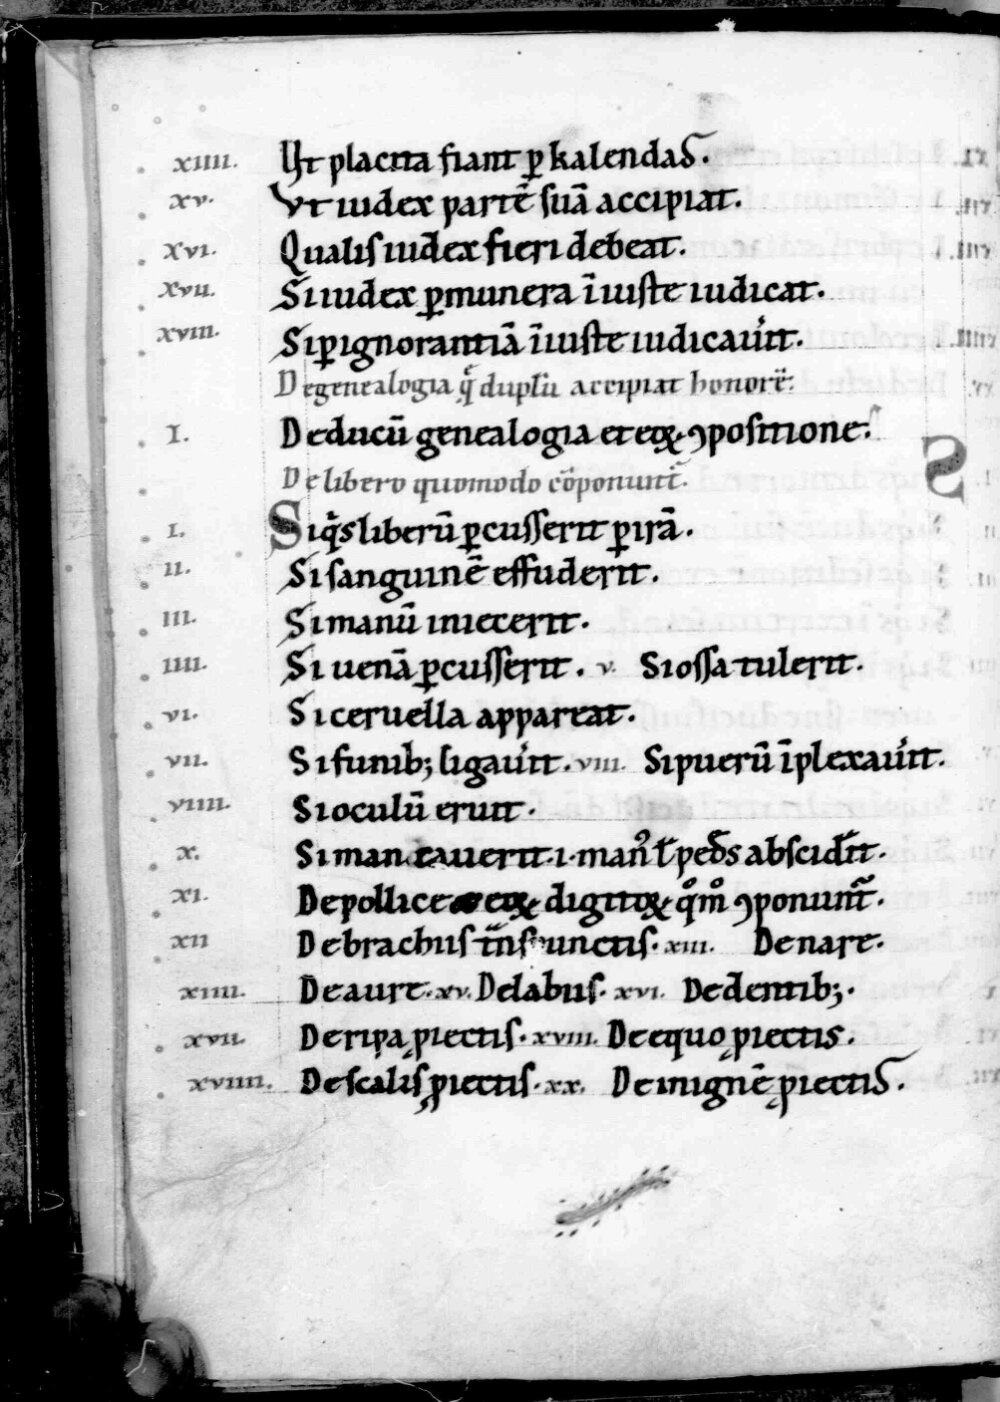 xiiii. Ut placita fiant ꝑ kalendas.
xv. Ut iudex partē suā accipiat.
xvi. Qualis iudex fieri debeat.
xvii. Si iudex ꝑ munera īiuste iudicat.
xviii. Si ꝑ ignorantiā īiuste iudicau̍it.
De genealogia q̄ duplū accipiat honorē.
I. De ducū genealogia et eoꝝ ꝯpositione.
De libero quomodo cōponunt᷑.
i. Siq̄s liberū ꝑcusserit ꝑ irā.
ii. Si sanguinē effuderit.
iii. Si manū iniecerit.
iiii. Si uenā ꝑcusserit. v. Si ossa tulerit.
vi. Si ceruella appareat.
vii. Si funib; ligau̍it. viii. Si puerū īplexau̍it.
viiii. Si oculū eruit.
x. Si mancauerit .i. manꝰ ł pedes abscid̄it.
xi. De pollice et eoꝝ digitoꝝ qͦmͦ ꝯponunt᷑.
xii De brachiis t̄nspunctis. xiii. De nare.
xiiii. De aure. xv. De labiis. xvi. De dentib;.
xvii. De ripa ꝓiectis. xviii. De equo ꝓiectis.
xviiii. De scalis ꝓiectis. xx. De in ignē ꝓiectis.